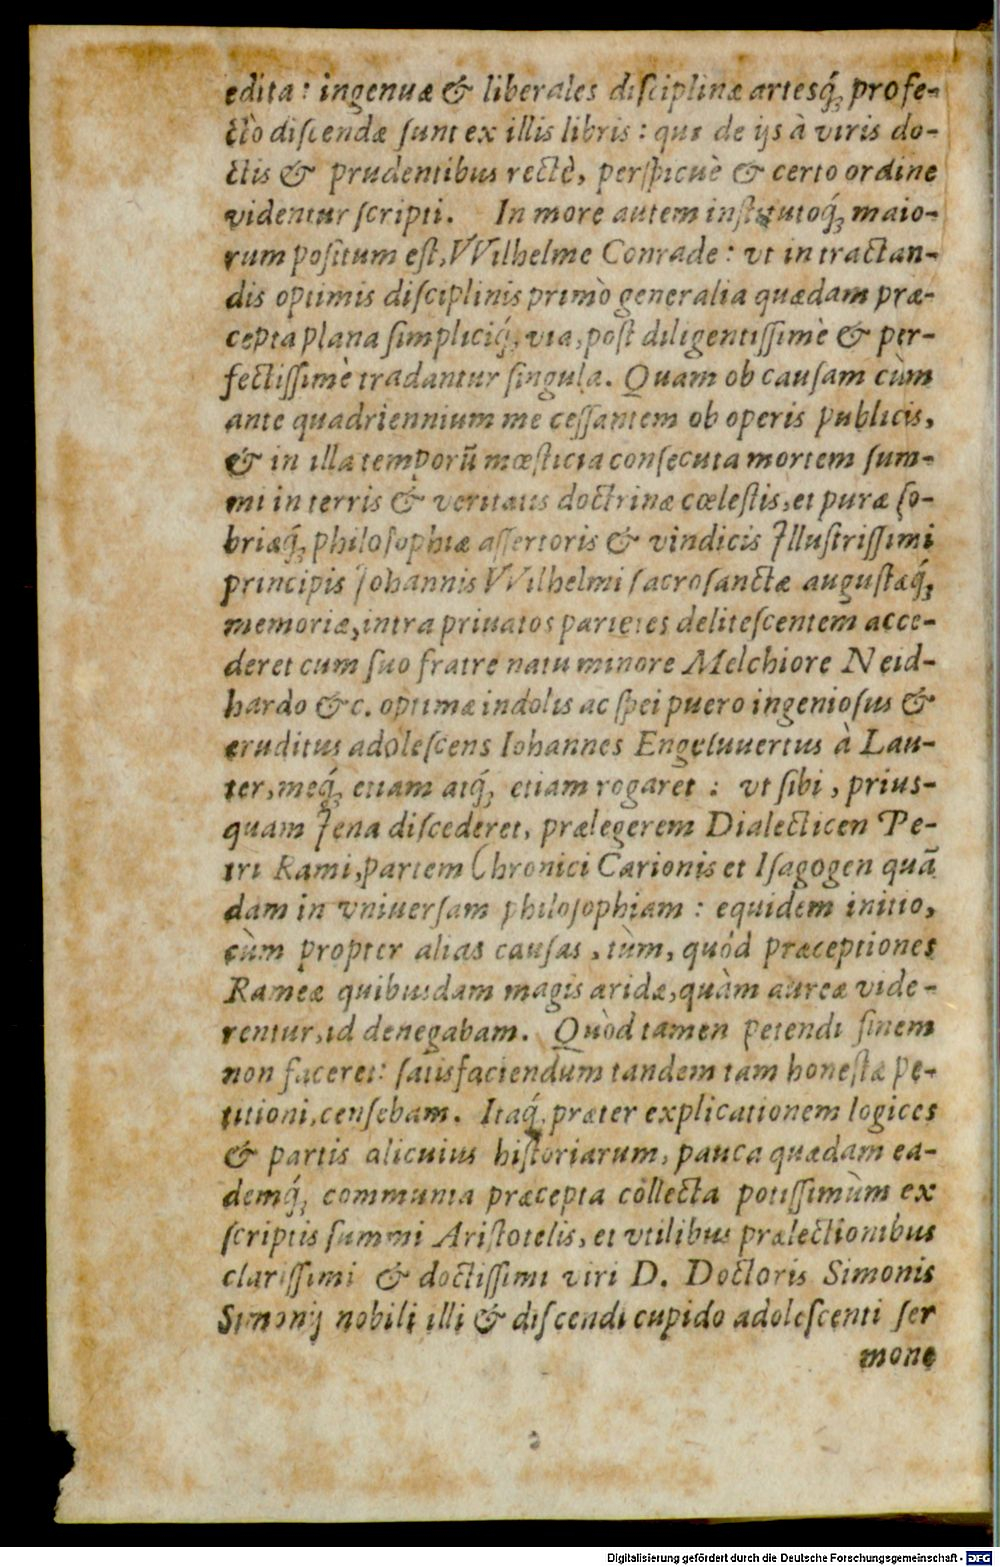 edita: ingenuæ & liberales diſciplinæ artesq́; profe-
ctò diſcendæ ſunt ex illis libris: qui de ijs à viris do-
ctis & prudentibus rectè, perſpicuè & certo ordine
videntur ſcripti. In more autem inſtitutoq́; maio-
rum poſitum eſt, VVilhelme Conrade: vt in tractan-
dis optimis diſciplinis primò generalia quædam præ-
cepta plana ſimpliciq́; via, poſt diligentiſſimè & per-
fectiſſimè tradantur ſingula. Quam ob cauſam cùm
ante quadriennium me ceſſantem ob operis publicis,
& in illa temporũ mœſticia conſecuta mortem ſum-
mi in terris & veritatis doctrinæ cœleſtis, et puræ ſo-
briæq́; philoſophiæ aſſertoris & vindicis Illuſtriſſimi
principis Johannis VVilhelmi ſacroſanctæ auguſtæq́;
memoriæ, intra priuatos parietes deliteſcentem acce-
deret cum ſuo fratre natu minore Melchiore Neid-
hardo &c. optimæ indolis ac ſpei puero ingenioſus &
eruditus adoleſcens Iohannes Engeluuertus à Lau-
ter, meq́; etiam atq́; etiam rogaret: vt ſibi, prius-
quam Jena diſcederet, prælegerem Dialecticen Pe-
tri Rami, partem Chronici Carionis et Iſagogen quā
dam in vniuerſam philoſophiam: equidem initio,
cùm propter alias cauſas, tùm, quòd præceptiones
Rameæ quibusdam magis aridæ, quàm aureæ vide-
rentur, id denegabam. Quòd tamen petendi finem
non faceret: ſatisfaciendum tandem tam honeſtæ pe-
titioni, cenſebam. Itaq́; præter explicationem logices
& partis alicuius hiſtoriarum, pauca quædam ea-
demq́; communia præcepta collecta potiſſimùm ex
ſcriptis ſummi Ariſtotelis, et vtilibus prælectionibus
clariſſimi & doctiſſimi viri D. Doctoris Simonis
Simonij nobili illi & diſcendi cupido adoleſcenti ſer
mone
Digitalisierung gefördert durch die Deutsche Forschungsgemeinschaft - DFG